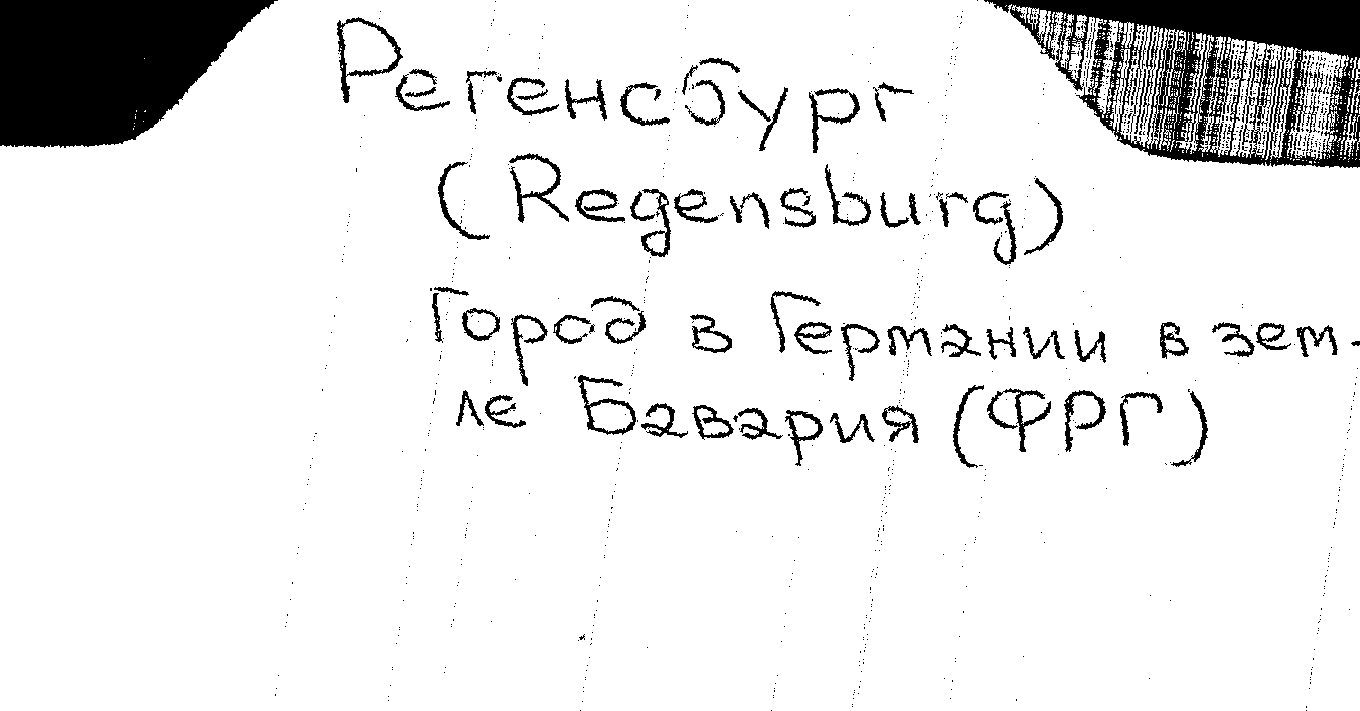 Регенсбург
(Regensburg)
Город в Германии в зем-
ле Бавария (ФРГ)